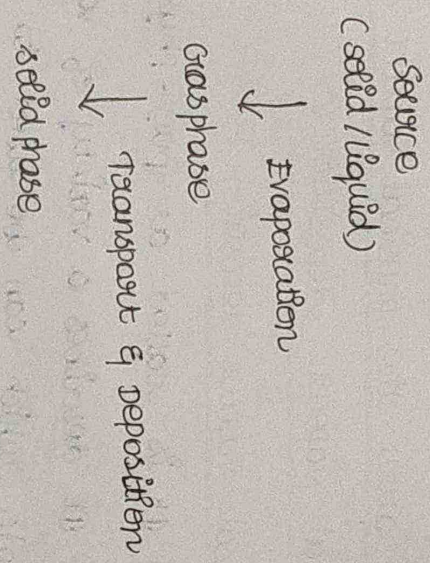 Source
(solid/Liquid)
↓ Evaporation
Gas phase
↓ Transport & Deposition
solid phase